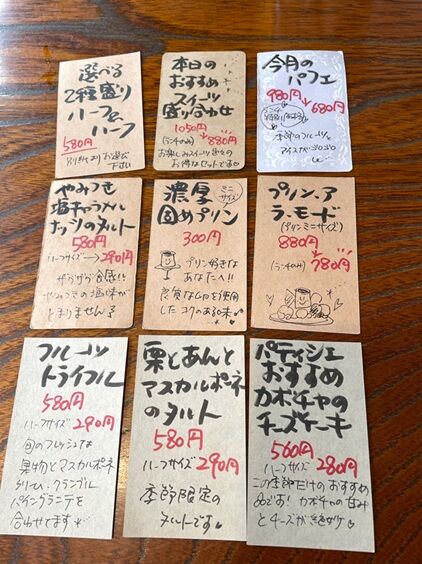 選べる
2種盛り
ハーフ&
ハーフ
580円
お選び
下さい
本日の
おすすめ
スイーツ
盛り合わせ
1050円
(ランチのみ) → 880円
お楽しみスイーツ
お得なセットです
今月の
パフェ
980円 → 680円
季節のフルーツ
アイス
やみつき
塩キャラメル
ナッツのタルト
580円
ハーフサイズ → 290円
ザクザク食感!!
やみつきの塩味が
とまりません♪
濃厚
ミニ
サイズ
固めプリン
300円
プリン好きな
あなたへ!!
良質な卵を使用
したコクのある味
プリン・ア
ラ・モード
(プリンミニサイズ)
880円
(ランチのみ) 780円
フルーツ
トライフル
580円
ハーフサイズ 290円
旬のフレッシュな
果物とマスカルポネ
クランブル
パイングラニテを
合わせてます
栗とあんと
マスカルポネ
のタルト
580円
ハーフサイズ 290円
季節限定の
タルトです♡
パティシェ
おすすめ
カボチャの
チーズケーキ
560円
ハーフサイズ 280円
この季節だけのおすすめ
品です! カボチャの甘み
とチーズが絶妙♡